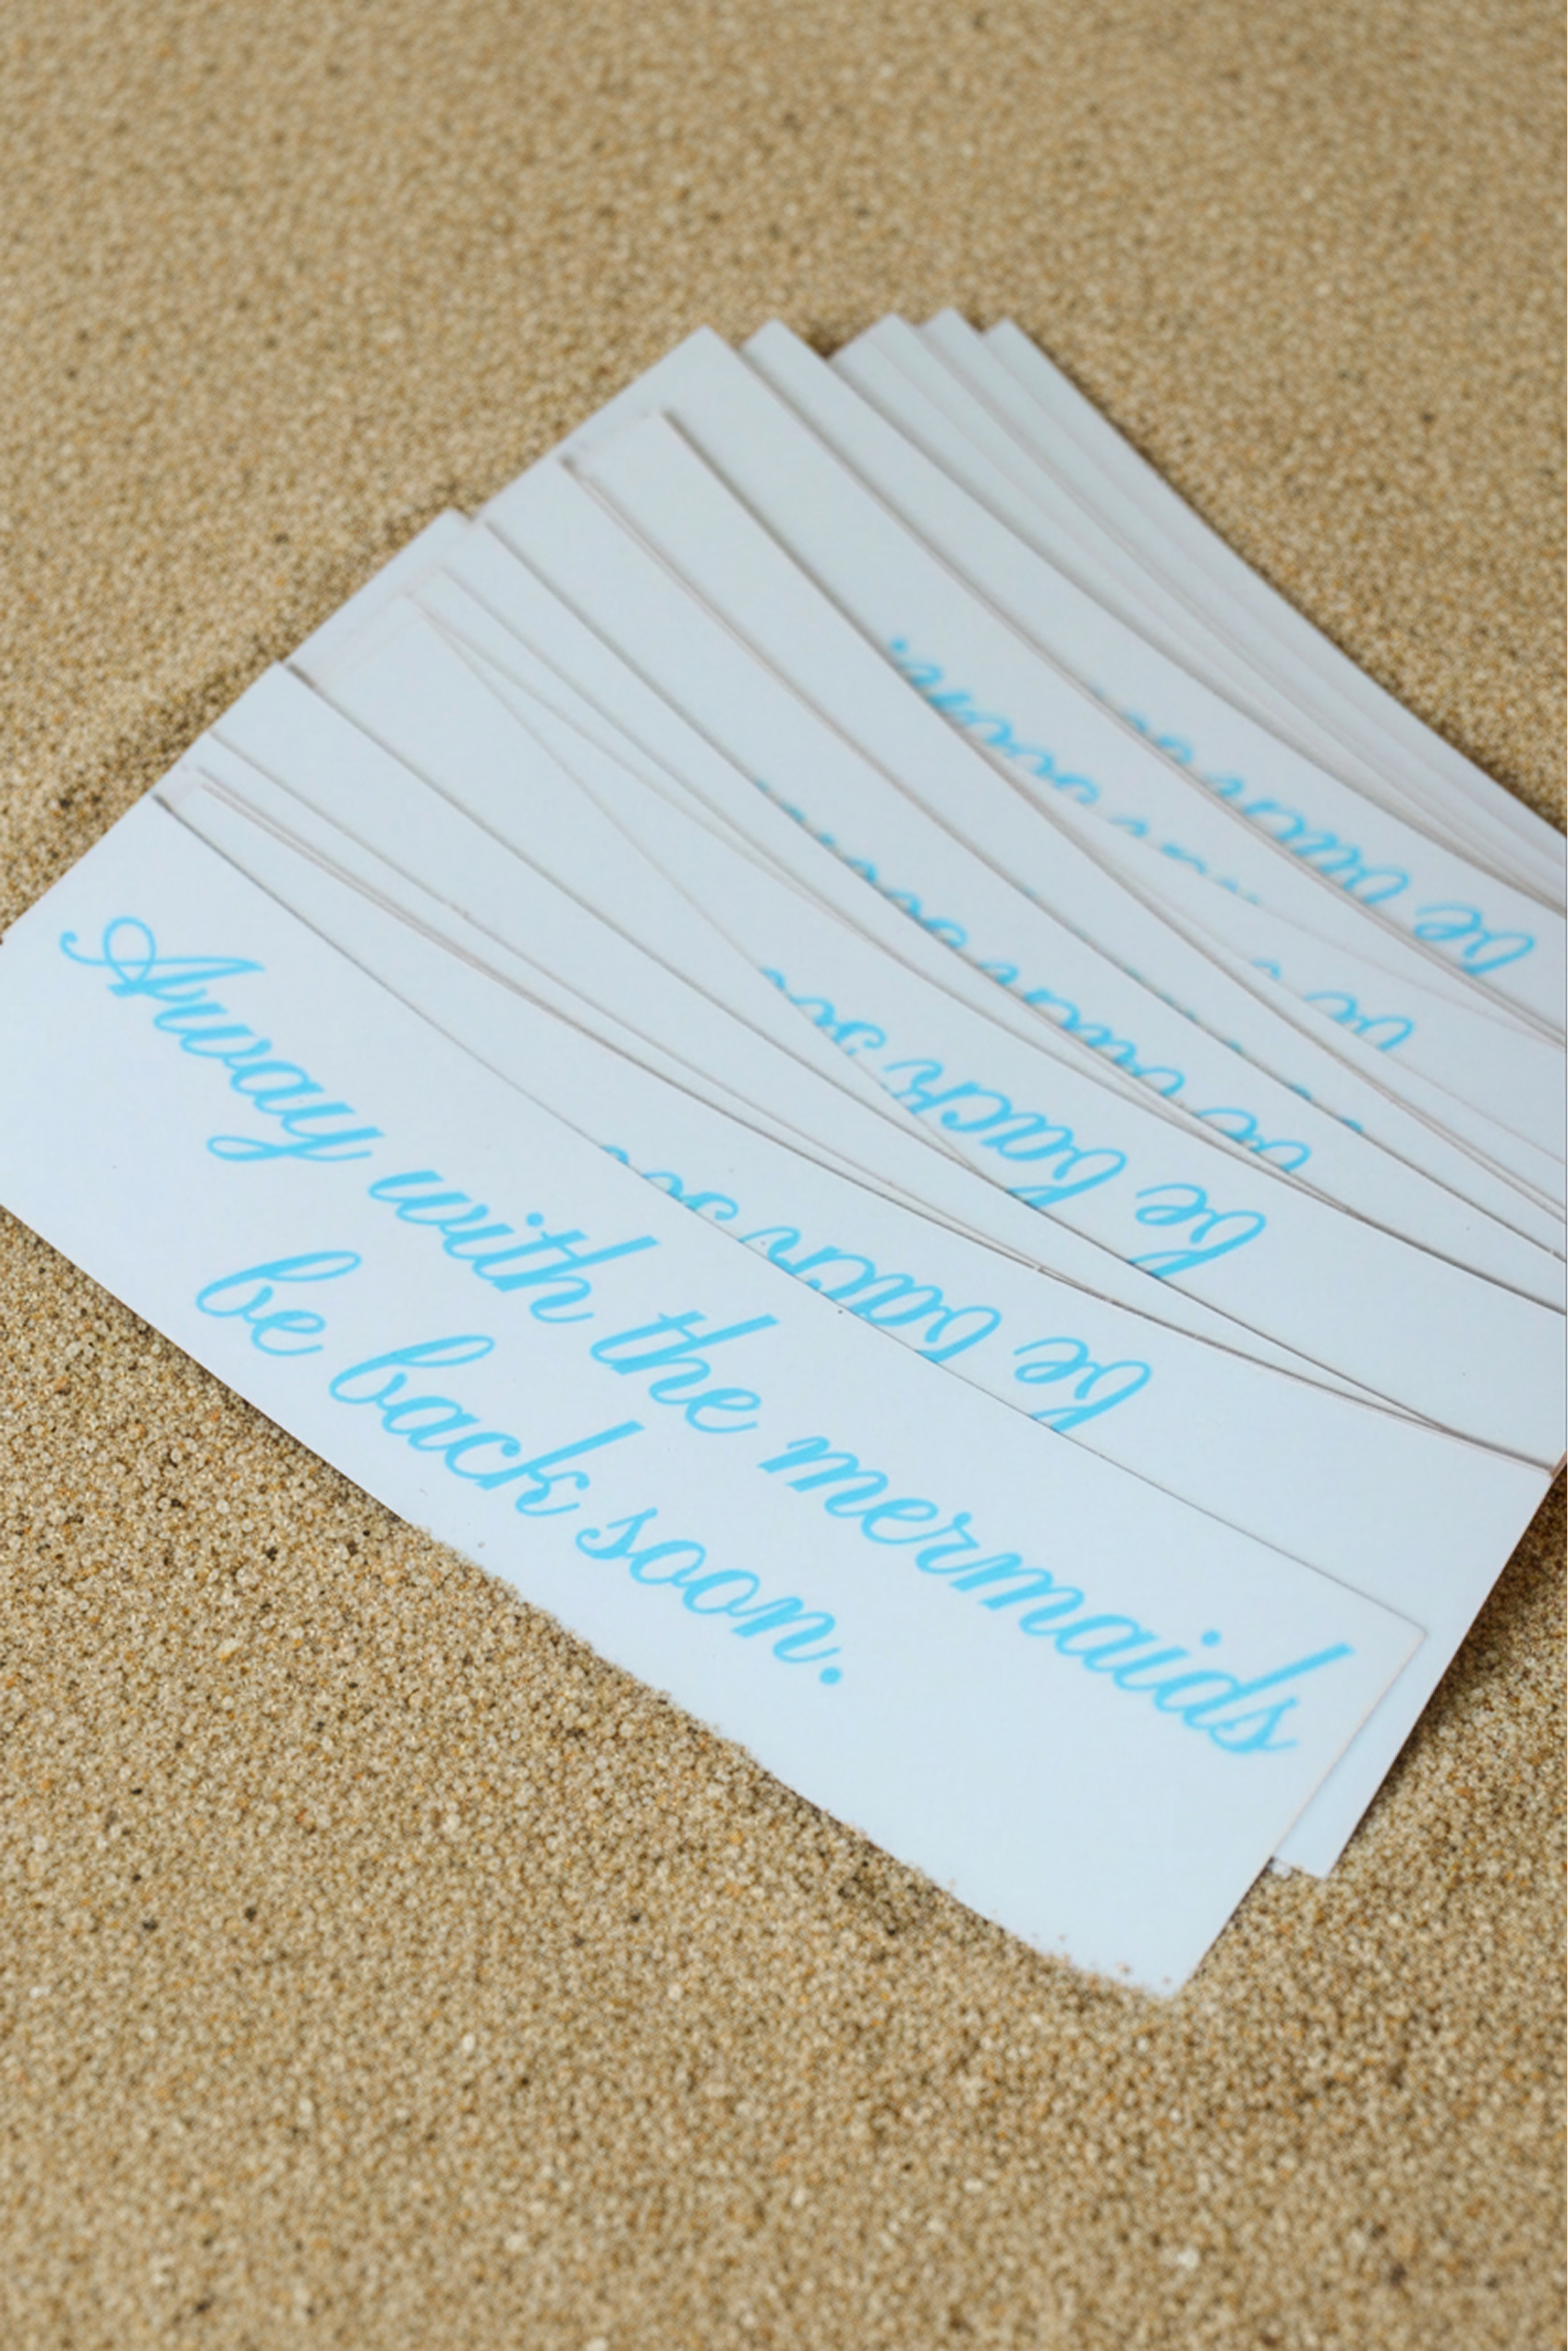 Away with the mermaids
be back soon.
be back so
be back
be back
be
soon.